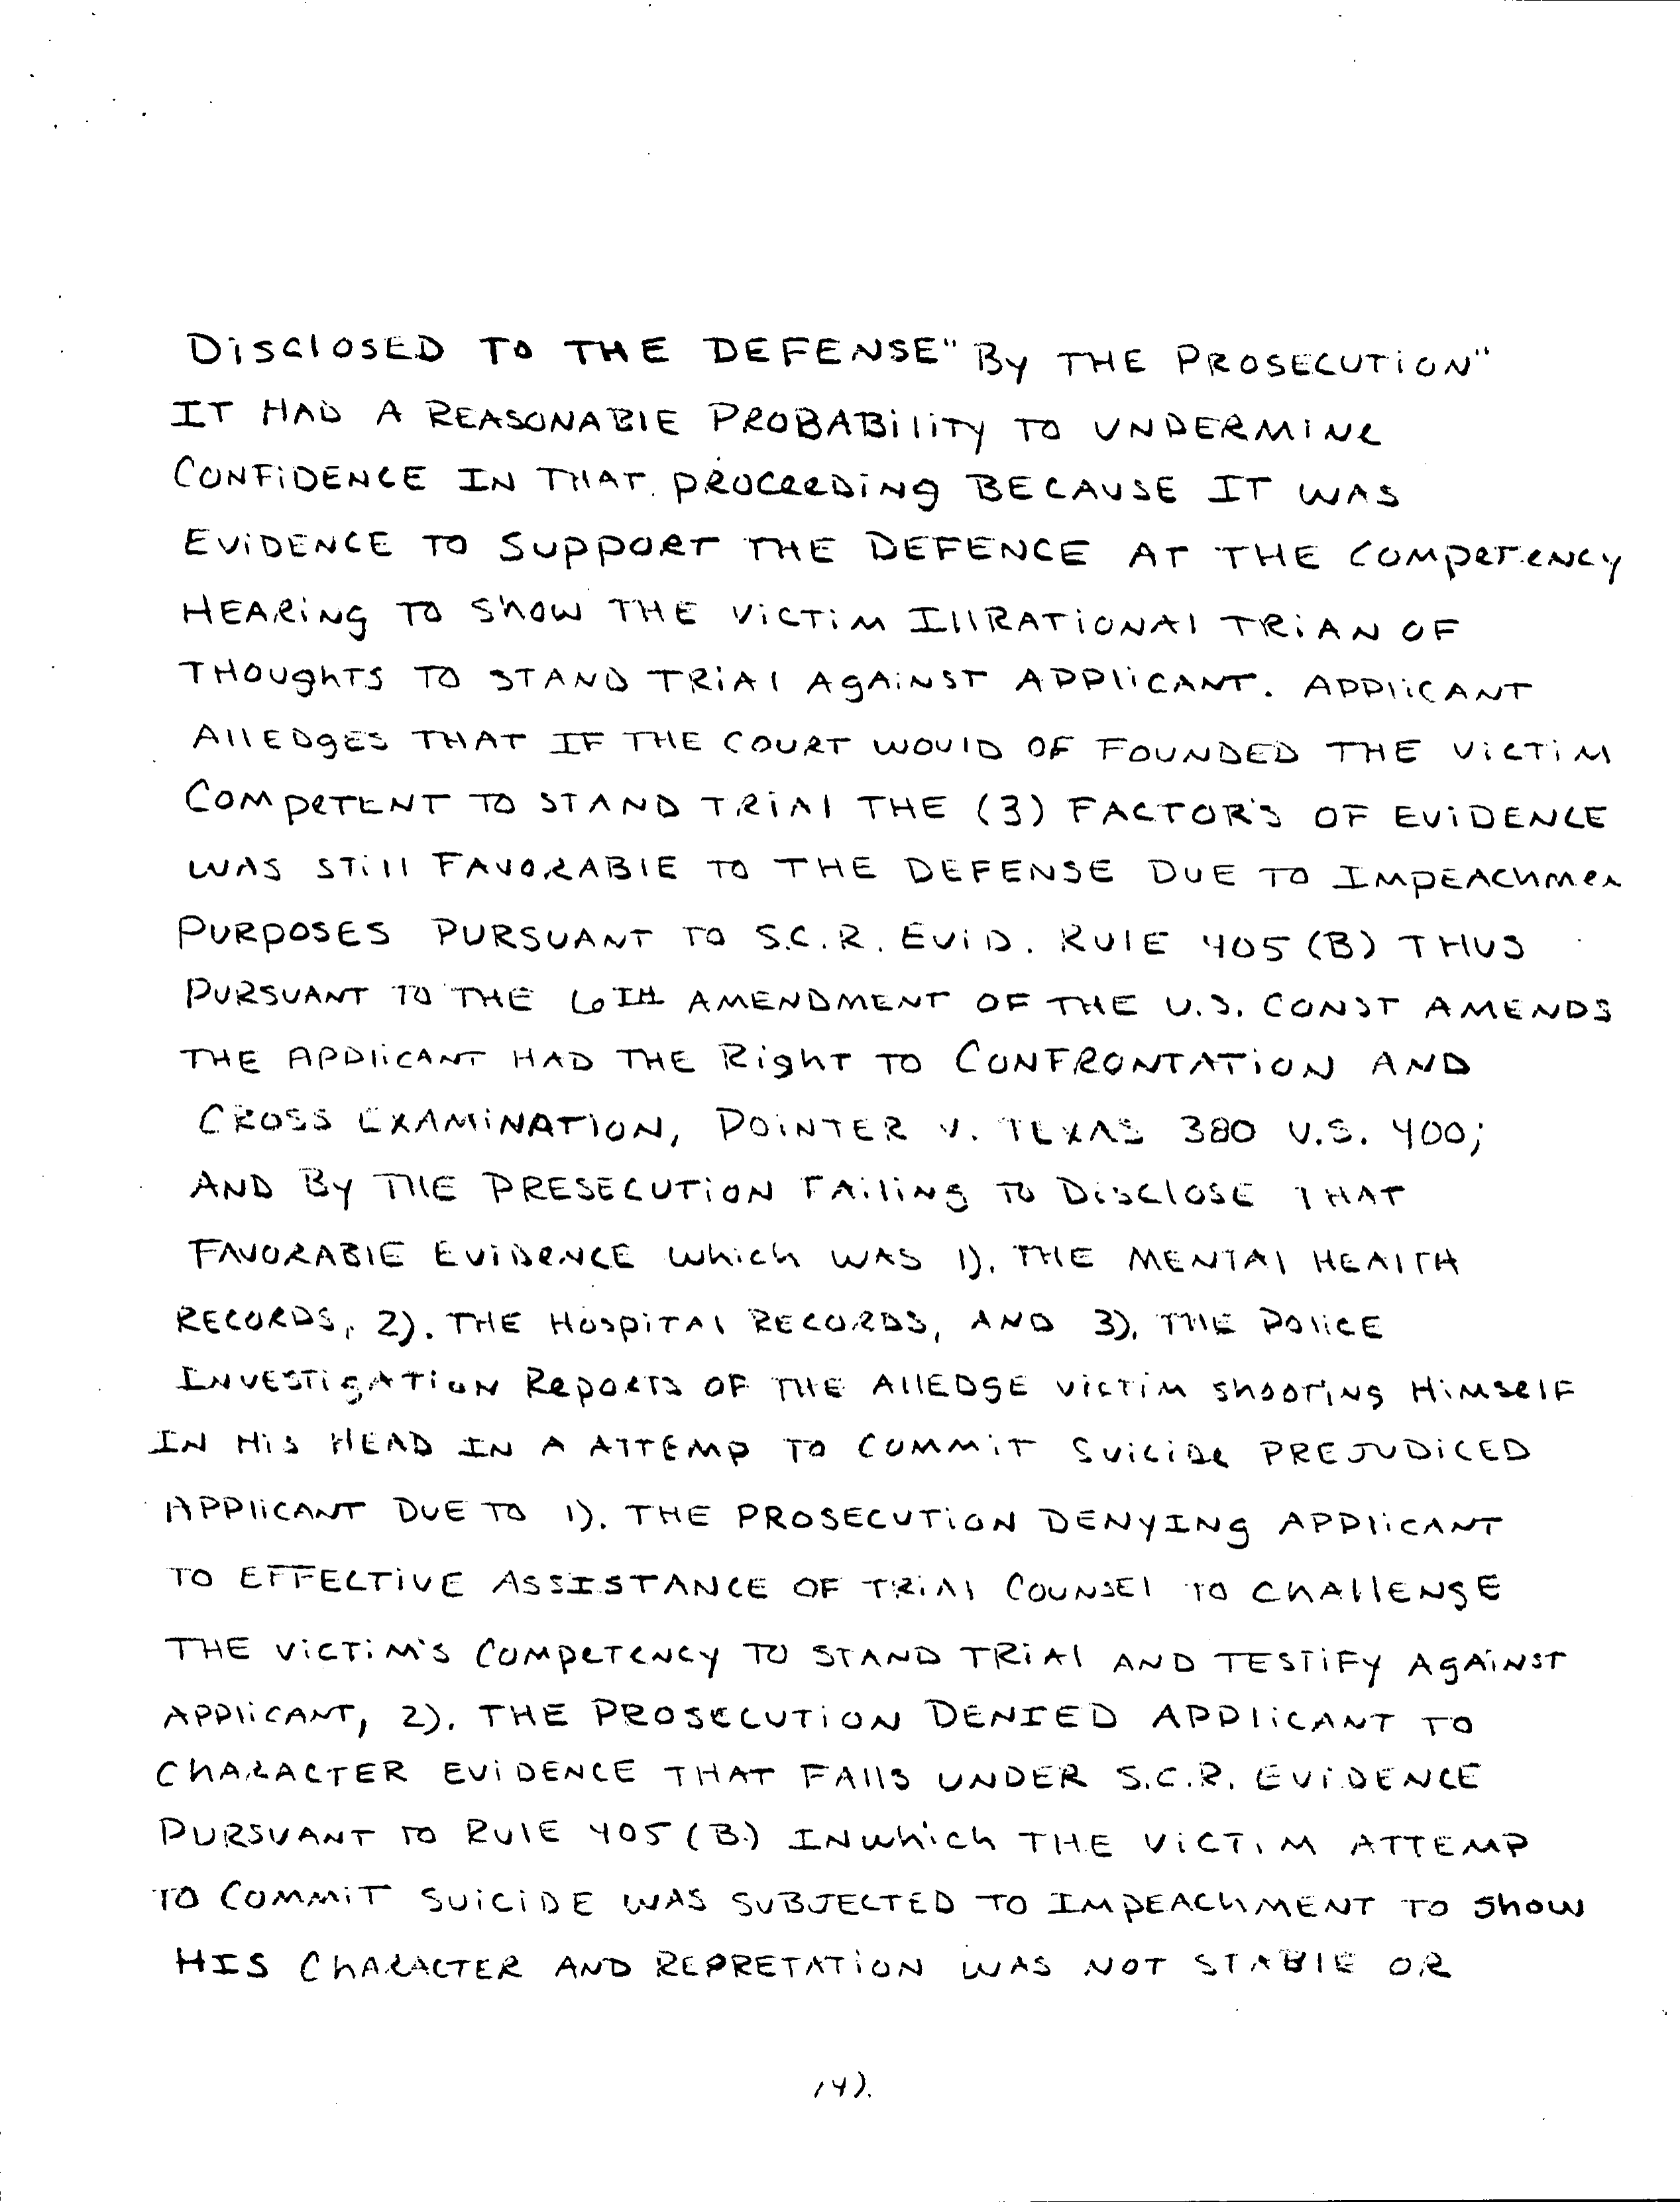 DISCLOSED TO THE DEFENSE "BY THE PROSECUTION"
IT HAD A REASONABLE PROBABILITY TO UNDERMINE
CONFIDENCE IN THAT PROCEEDING BECAUSE IT WAS
EVIDENCE TO SUPPORT THE DEFENCE AT THE COMPETENCY
HEARING TO SHOW THE VICTIM ILLRATIONAL TRIAN OF
THOUGHTS TO STAND TRIAL AGAINST APPLICANT. APPLICANT
ALLEDGES THAT IF THE COURT WOULD OF FOUNDED THE VICTIM
COMPETENT TO STAND TRIAL THE (3) FACTOR'S OF EVIDENCE
WAS STILL FAVORABLE TO THE DEFENSE DUE TO IMPEACHMEN
PURPOSES PURSUANT TO S.C.R. EVID. RULE 405 (B) THUS
PURSUANT TO THE 6TH AMENDMENT OF THE U.S. CONST AMENDS
THE APPLICANT HAD THE RIGHT TO CONFRONTATION AND
CROSS EXAMINATION, POINTER V. TEXAS 380 U.S. 400;
AND BY THE PRESECUTION FAILING TO DISCLOSE THAT
FAVORABLE EVIDENCE WHICH WAS 1). THE MENTAL HEALTH
RECORDS, 2). THE HOSPITAL RECORDS, AND 3). THE POLICE
INVESTIGATION REPORTS OF THE ALLEDGE VICTIM SHOOTING HIMSELF
IN HIS HEAD IN A ATTEMP TO COMMIT SUICIDE PREJUDICED
APPLICANT DUE TO 1). THE PROSECUTION DENYING APPLICANT
TO EFFECTIVE ASSISTANCE OF TRIAL COUNSEL TO CHALLENGE
THE VICTIM'S COMPETENCY TO STAND TRIAL AND TESTIFY AGAINST
APPLICANT, 2). THE PROSECUTION DENIED APPLICANT TO
CHARACTER EVIDENCE THAT FALLS UNDER S.C.R. EVIDENCE
PURSUANT TO RULE 405 (B.) INWHICH THE VICTIM ATTEMP
TO COMMIT SUICIDE WAS SUBJECTED TO IMPEACHMENT TO SHOW
HIS CHARACTER AND REPRETATION WAS NOT STABLE OR
14).